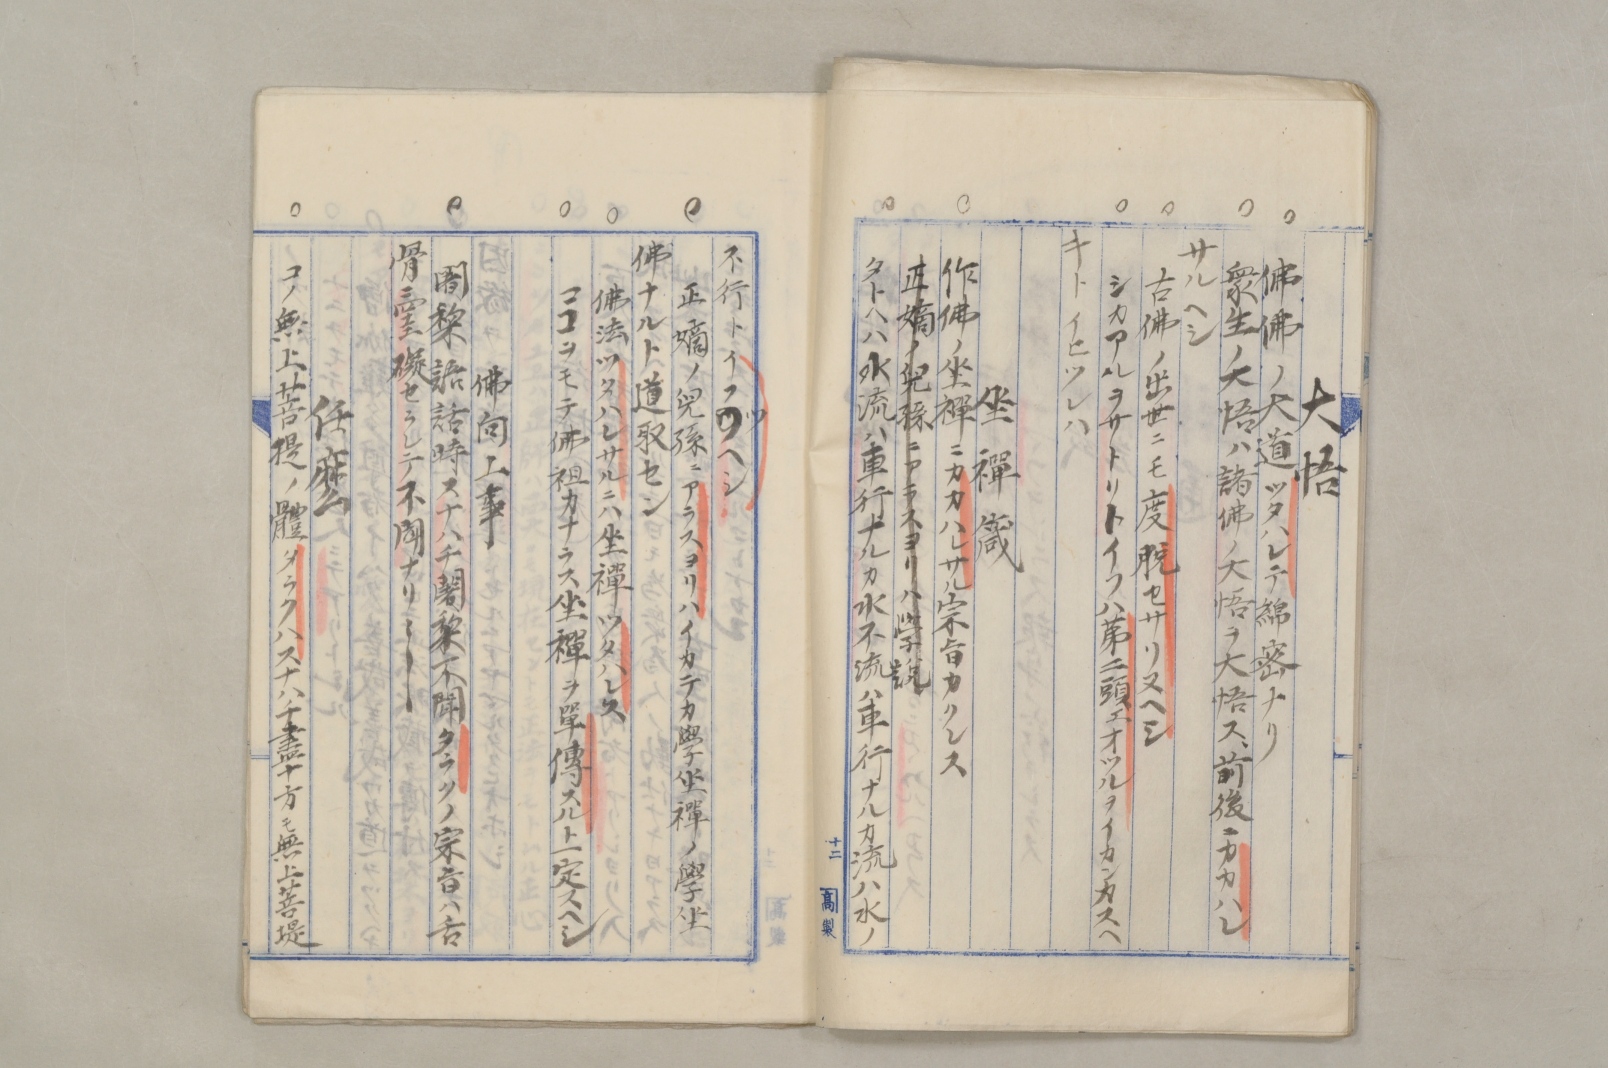 大悟
佛佛ノ大道ツタハレテ綿密ナリ
衆生ノ大悟ハ諸佛ノ大悟ヲ大悟ス、前後ニカカハレ
サルヘシ
古佛ノ出世ニモ度脱セサリヌヘシ
シカアルヲサトリトイフハ第二頭エオツルヲイカンカスヘ
キトイヒツレハ
坐禪箴
作佛ノ坐禪ニカカハレサル宗旨カクレス
正嫡ノ兒孫ニアラスヨリハ學說
タトハハ水流ハ車行ナルカ水不流ハ車行ナルカ流ハ水ノ
十二
高製
不行トイフツヘシ
正嫡ノ兒孫ニアラスヨリハイカテカ學坐禪ノ學坐
佛ナルト道取セン
佛法ツタハレサルニハ坐禪ツタハレス
ココヲモテ佛祖カナラス坐禪ヲ單傳スルト一定スヘシ
佛向上事
闍黎語話時スナハチ闍黎不聞タラクノ宗旨ハ舌
骨罣礙セラレテ不聞ナリ
恁麽
コノ無上菩提ノ體タラクハスナハチ盡十方モ無上菩提